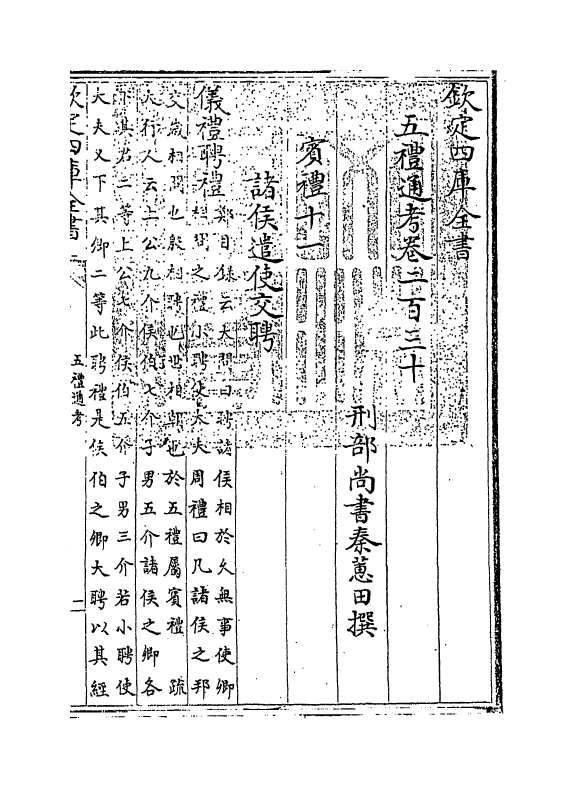 欽定四庫全書
五禮通考卷二百三十
刑部尚書秦蕙田撰
賓禮十一
諸侯遣使交聘
儀禮聘禮
鄭目録云大問曰聘諸侯相於久無事使卿
相問之禮小聘使大夫周禮曰凡諸侯之邦
交歲相問也殷相聘也世相朝也於五禮屬賓禮 疏
大行人云上公九介侯伯七介子男五介諸侯之卿各
下其君二等上公七介侯伯五介子男三介若小聘使
大夫又下其卿二等此聘禮是侯伯之卿大聘以其經
欽定四庫全書
五禮通考